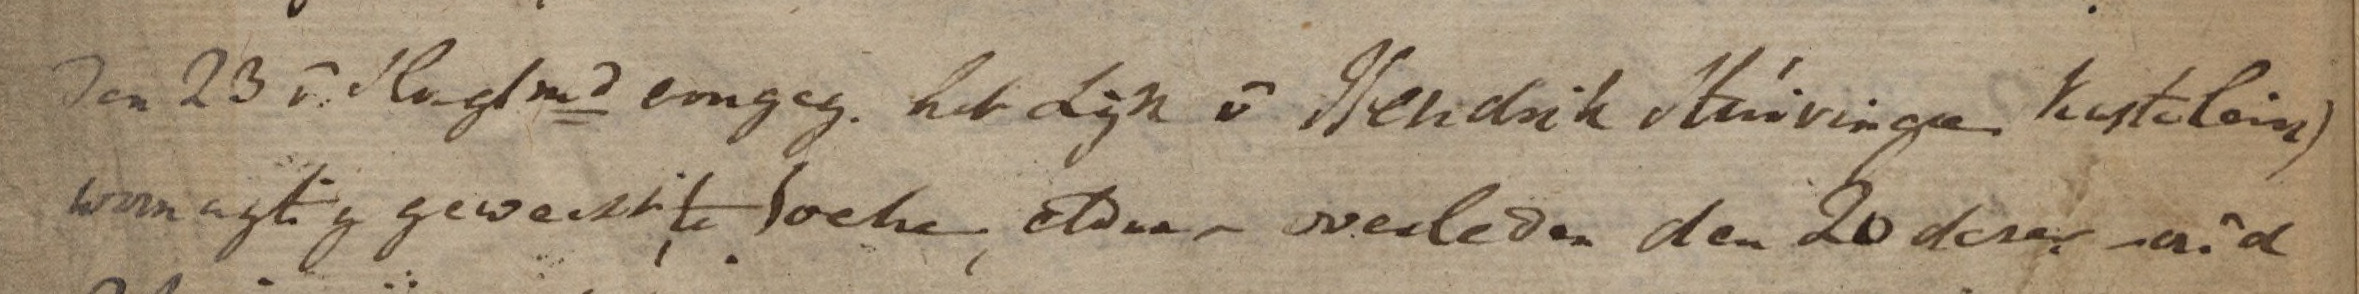 Den 23 v. Slagtmd eengeg. het Lijk v Hendrik Stuivinga Kastelein)
woonagtig geweest te Loche, aldaar overleden den 20 dezer md